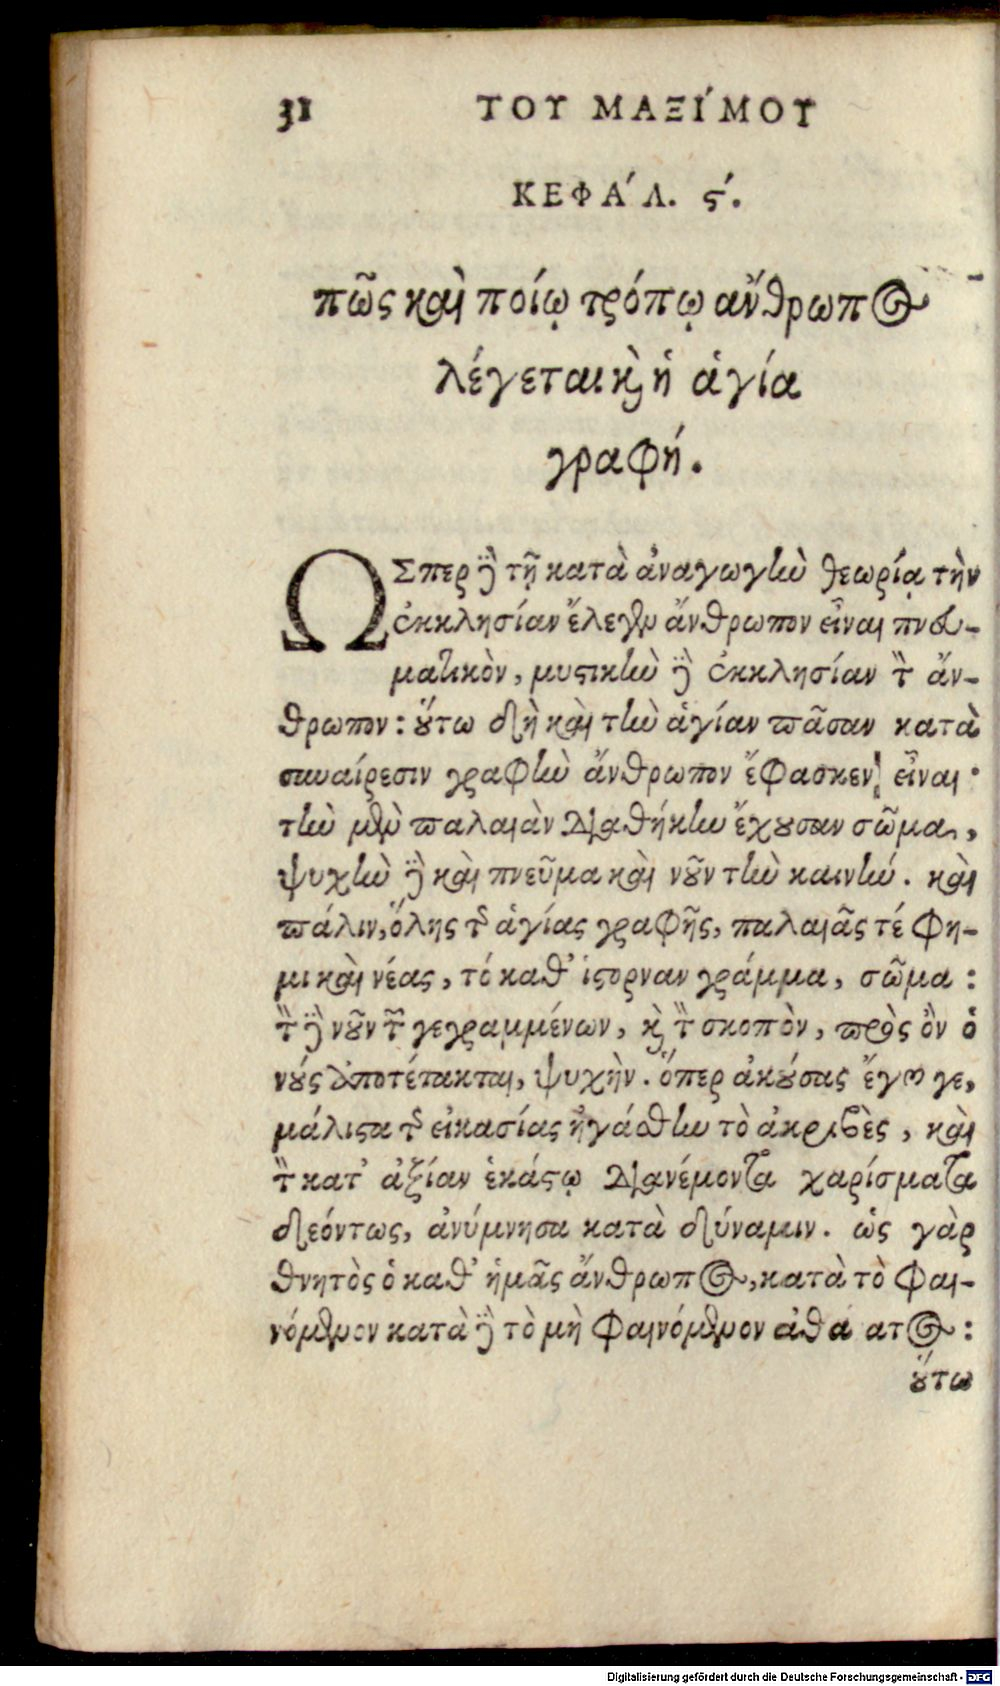 31 ΤΟΥ ΜΑΞΊΜΟΥ
ΚΕΦΆΛ. ϛ΄.
πῶς καὶ ποίῳ τρόπῳ ἄνθρωπος
λέγεται καὶ ἡ ἁγία
γραφή.
ΩΣπερ δὲ τῇ κατὰ ἀναγωγὴν θεωρίᾳ τὴν
ἐκκλησίαν ἔλεγεν ἄνθρωπον εἶναι πνευ-
ματικὸν, μυστικὴν δὲ ἐκκλησίαν τὸν ἄν-
θρωπον: οὕτω δὴ καὶ τὴν ἁγίαν πᾶσαν κατὰ
συναίρεσιν γραφὴν ἄνθρωπον ἔφασκεν εἶναι·
τὴν μὲν παλαιὰν διαθήκην ἔχουσαν σῶμα,
ψυχὴν δὲ καὶ πνεῦμα καὶ νοῦν τὴν καινήν. καὶ
πάλιν, ὅλης τῆς ἁγίας γραφῆς, παλαιᾶς τέ φη-
μι καὶ νέας, τό καθ' ἱστορναν γράμμα, σῶμα:
τὸν δὲ νοῦν τῶν γεγραμμένων, καὶ τὸν σκοπὸν, πρὸς ὃν ὁ
νοῦς ὑποτέτακται, ψυχὴν. ὅπερ ἀκούσας ἔγωγε,
μάλιστα τῆς εἰκασίας ἠγάσθην τὸ ἀκριβὲς, καὶ
τὸν κατ' ἀξίαν ἑκάστῳ διανέμοντα χαρίσματα
δεόντως, ἀνύμνησα κατὰ δύναμιν. ὡς γὰρ
θνητὸς ὁ καθ' ἡμᾶς ἄνθρωπος, κατὰ τὸ φαι-
νόμενον κατὰ δὲ τὸ μὴ φαινόμενον ἀθά ατος:
οὕτω
Digitalisierung gefördert durch die Deutsche Forschungsgemeinschaft - DFG